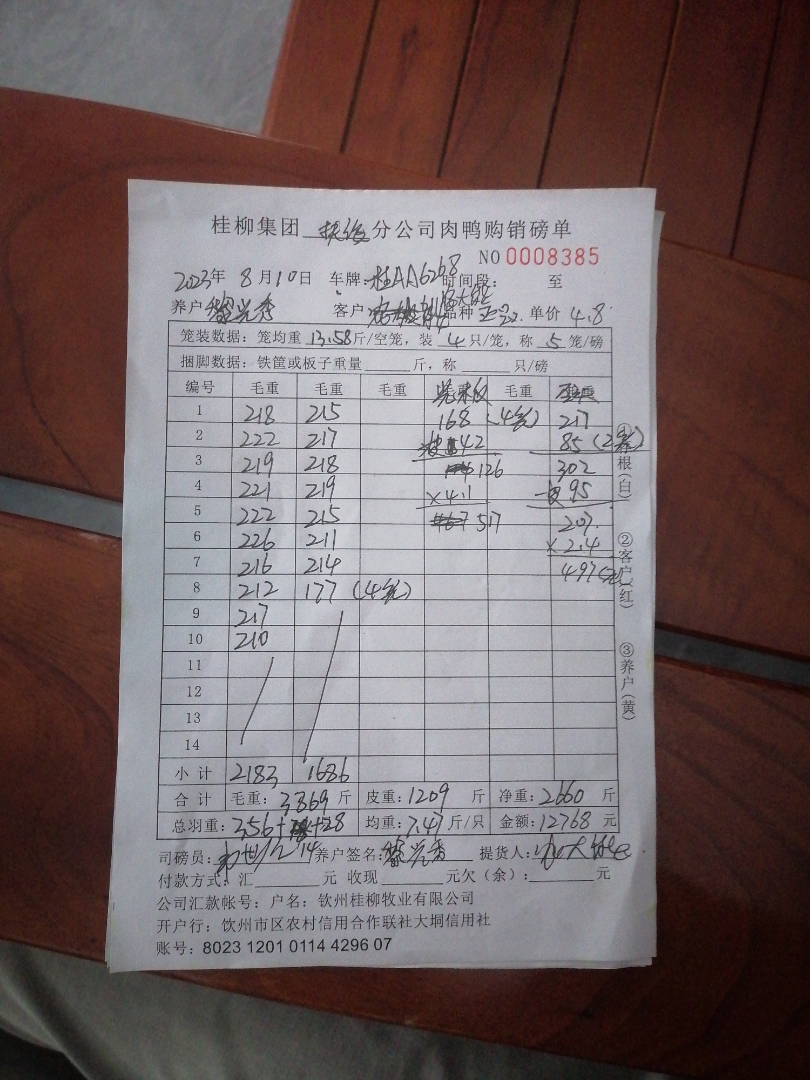 桂柳集团 扶绥 分公司肉鸭购销磅单
NO 0008385
2023年 8月10日 车牌:桂AA6268 时间段: 至
养户 黎兴秀 客户 品种 正品 单价 4.8
笼装数据: 笼均重 13.58斤/空笼, 装 4 只/笼, 称 5 笼/磅
捆脚数据: 铁筐或板子重量 斤, 称 只/磅
编号 毛重 毛重 毛重 毛重
1 218 215 168 (4笼) 217
2 222 217 42 85 (2笼)
3 219 218 126 302
4 221 219 ×4.1 95
5 222 215 517 207
6 226 211 ×2.4
7 216 214 497
8 212 177 (4笼)
9 217
10 210
11
12
13
14
小计 2183 1686
合计 毛重: 3869 斤 皮重: 1209 斤 净重: 2660 斤
总羽重: 356+ +28 均重: 7.47 斤/只 金额: 12768 元
14
司磅员: 养户签名: 黎兴秀 提货人:
付款方式: 汇 元 收现 元欠(余): 元
公司汇款帐号: 户名: 钦州桂柳牧业有限公司
开户行: 钦州市区农村信用合作联社大垌信用社
账号: 8023 1201 0114 4296 07
根(白)
②客户(红)
③养户(黄)